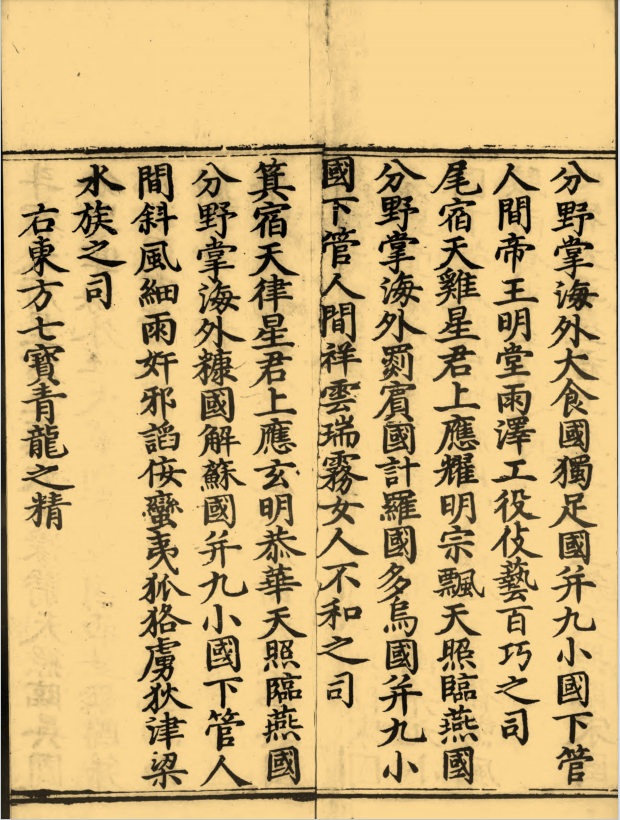 分野掌海外大食國獨足國并九小國下管
人間帝王明堂雨澤工役伎藝百巧之司
尾宿天雞星君上應耀明宗飄天照臨燕國
分野掌海外罽賓國計羅國多烏國并九小
國下管人間祥雲瑞霧女人不和之司
箕宿天律星君上應玄明恭華天照臨燕國
分野掌海外糠國解蘇國并九小國下管人
間斜風細雨奸邪謟侫蠻夷狐狢虜狄津梁
水族之司
右東方七寶青龍之精